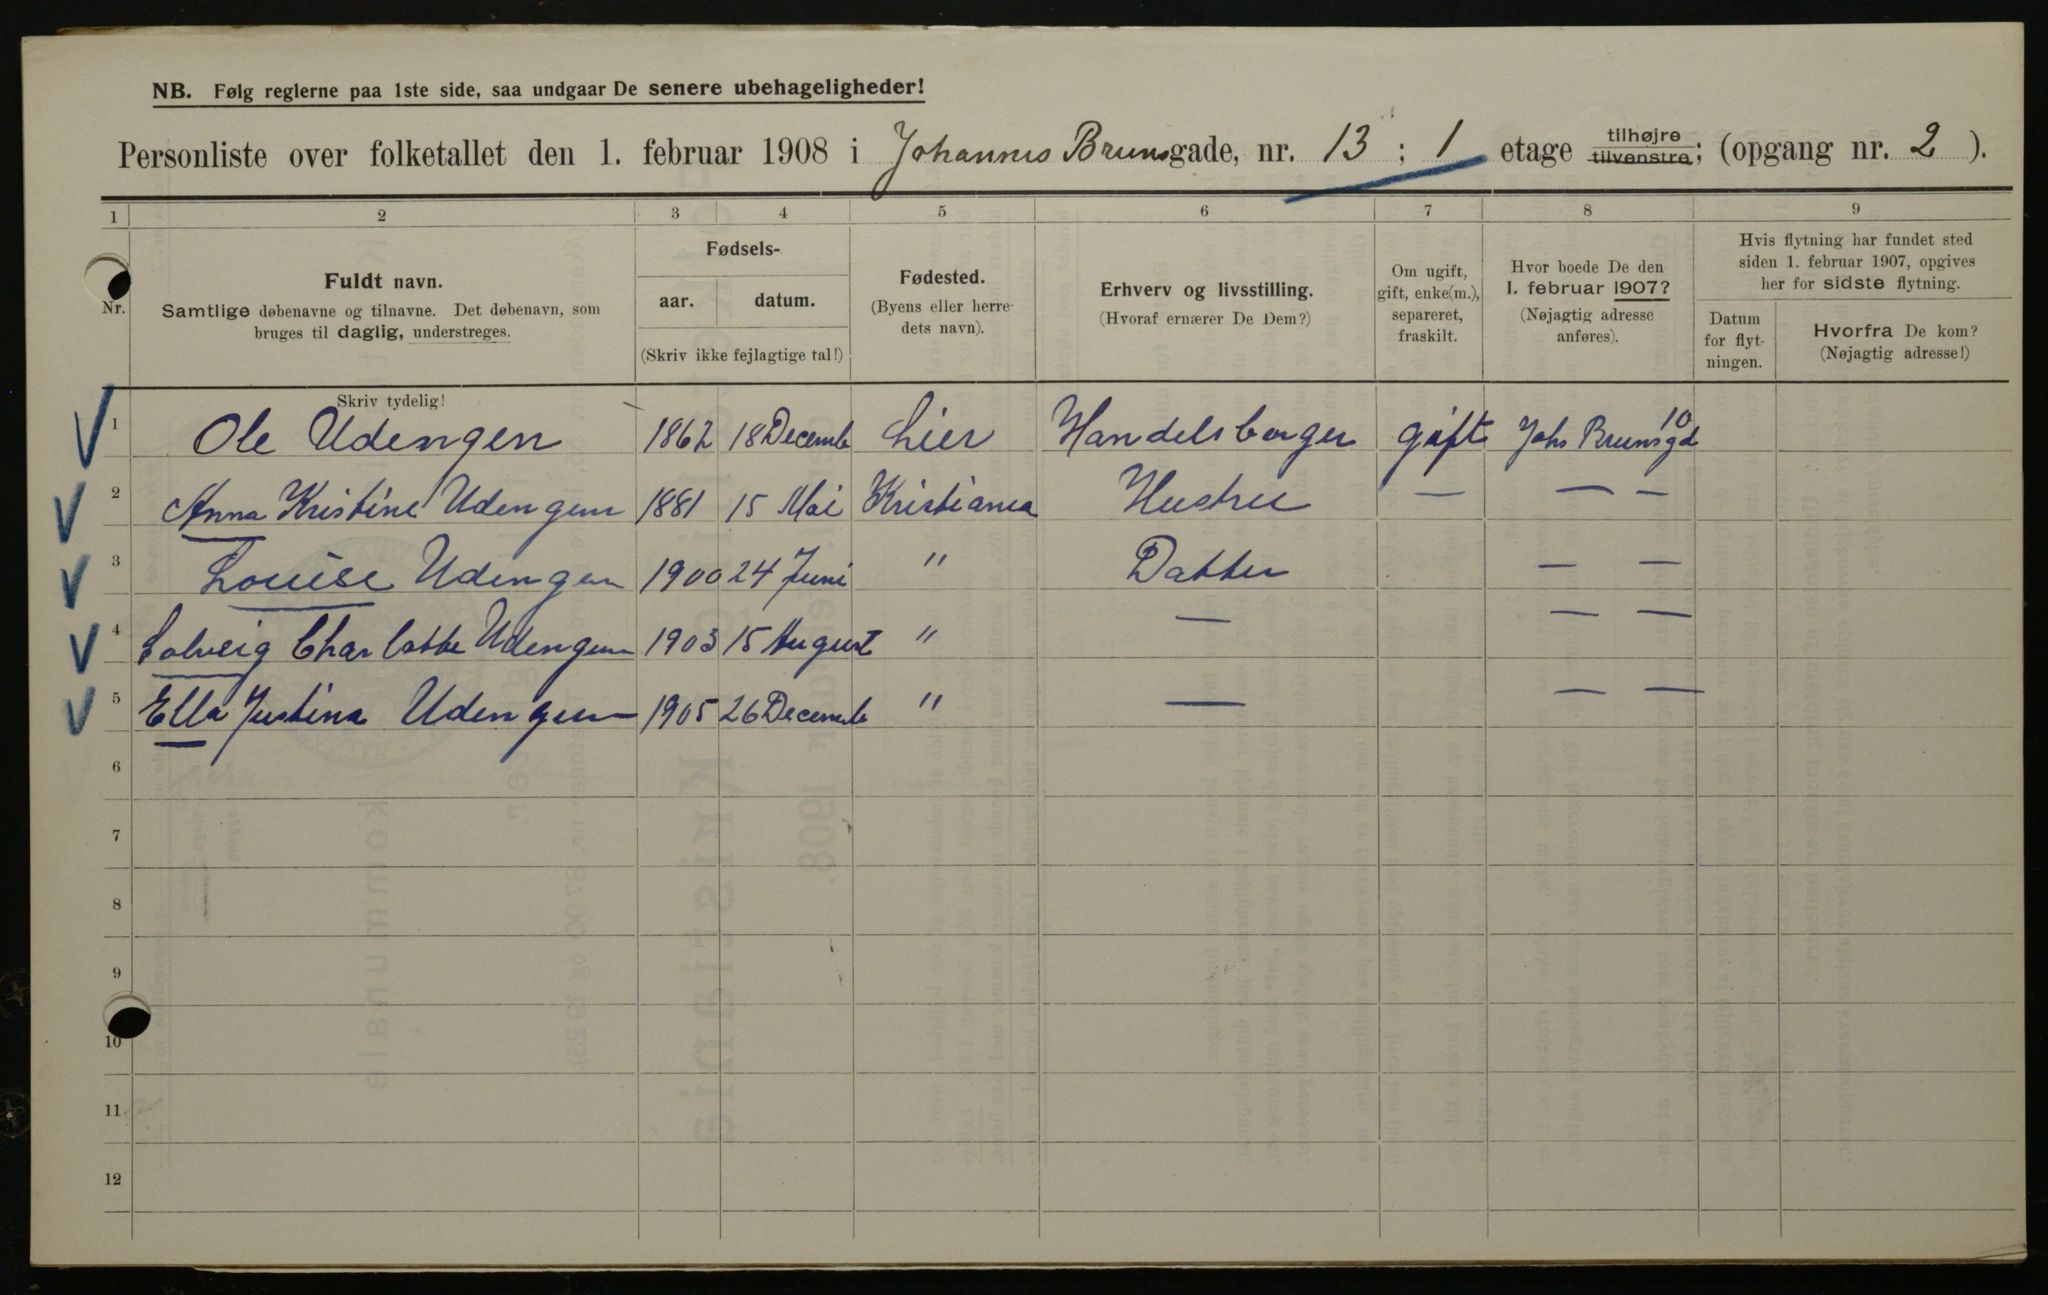 NB. Følg reglerne paa 1ste side, saa undgaar De senere ubehageligheder!
Personliste over folketallet den 1. februar 1908 i Johannes Brunsgade, nr. 13 ; 1 etage tilhøjre tilvenstre; (opgang nr. 2 ).
1 2 3 4 5 6 7 8 9
Nr.
Fuldt navn.
Samtlige døbenavne og tilnavne. Det døbenavn, som
bruges til daglig, understreges.
Fødsels-
aar. datum.
(Skriv ikke fejlagtige tal!)
Fødested.
(Byens eller herre-
dets navn).
Erhverv og livsstilling.
(Hvoraf ernærer De Dem?)
Om ugift,
gift, enke(m.),
separeret,
fraskilt.
Hvor boede De den
1. februar 1907?
(Nøjagtig adresse
anføres).
Hvis flytning har fundet sted
siden 1. februar 1907, opgives
her for sidste flytning.
Datum
for flyt-
ningen.
Hvorfra De kom?
(Nøjagtig adresse!)
Skriv tydelig!
1 Ole Udengen 1862 18 Decemb Lier Handelsborger gift Johs Brunsgd 10
2 Anna Kristine Udengen 1881 15 Mai Kristiania Hustru — — —
3 Louise Udengen 1900 24 Juni " Datter — —
4 Solveig Charlotte Udengen 1903 15 August " — — —
5 Ella Justina Udengen 1905 26 Decemb " — — —
6
7
8
9
10
11
12